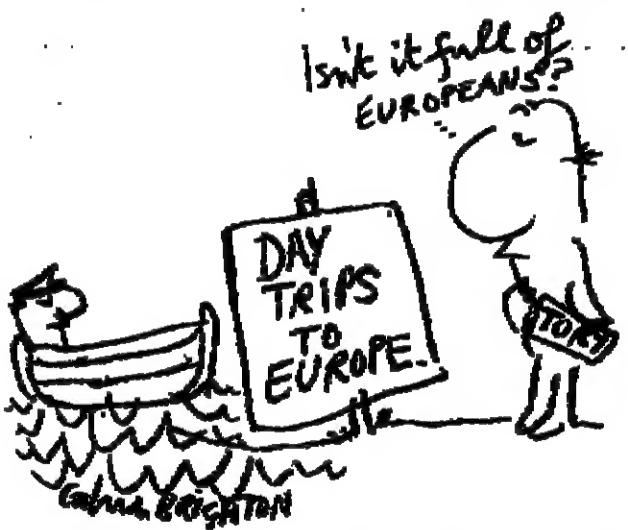 Isn't it full of
EUROPEANS?
DAY
TRIPS
TO
EUROPE.
TORY
BRIGHTON